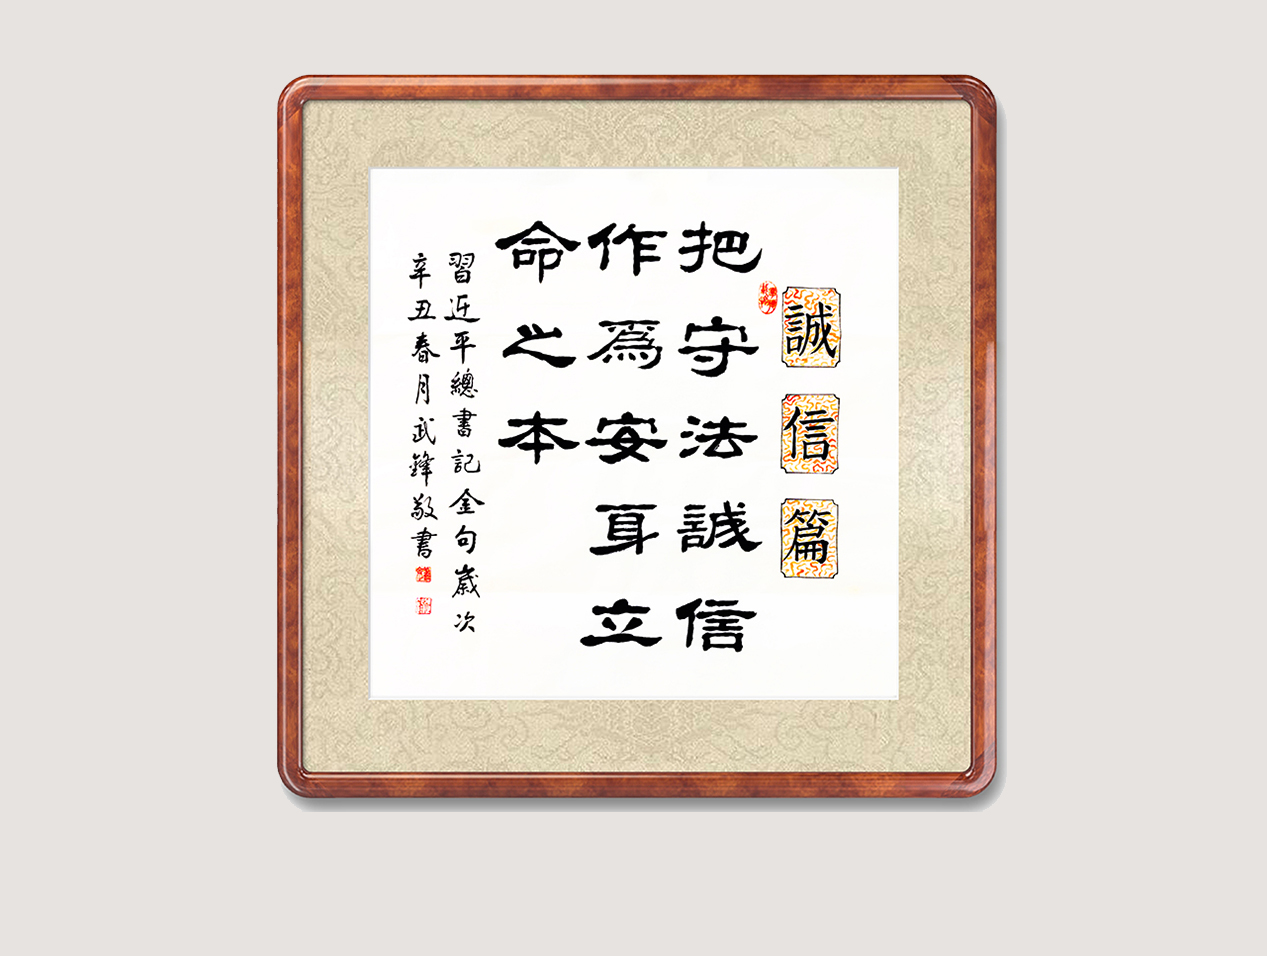 誠信篇
把守法誠信
作爲安身立
命之本
習近平總書記金句歲次
辛丑春月武鋒敬書